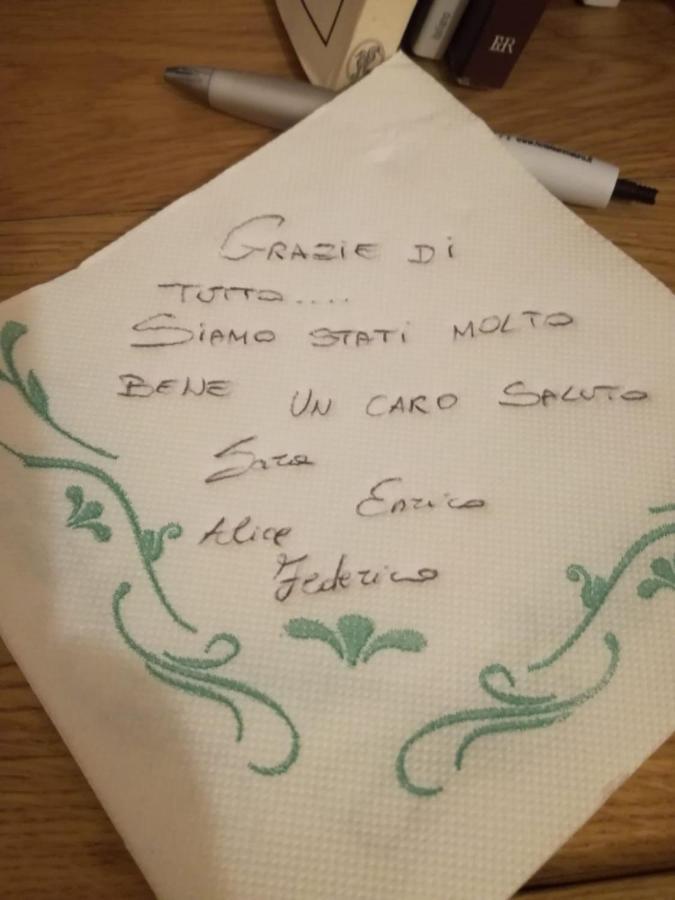 GRAZIE DI
TUTTO....
SIAMO STATI MOLTO
BENE UN CARO SALUTO
Sara
Enrico
Alice
Federico